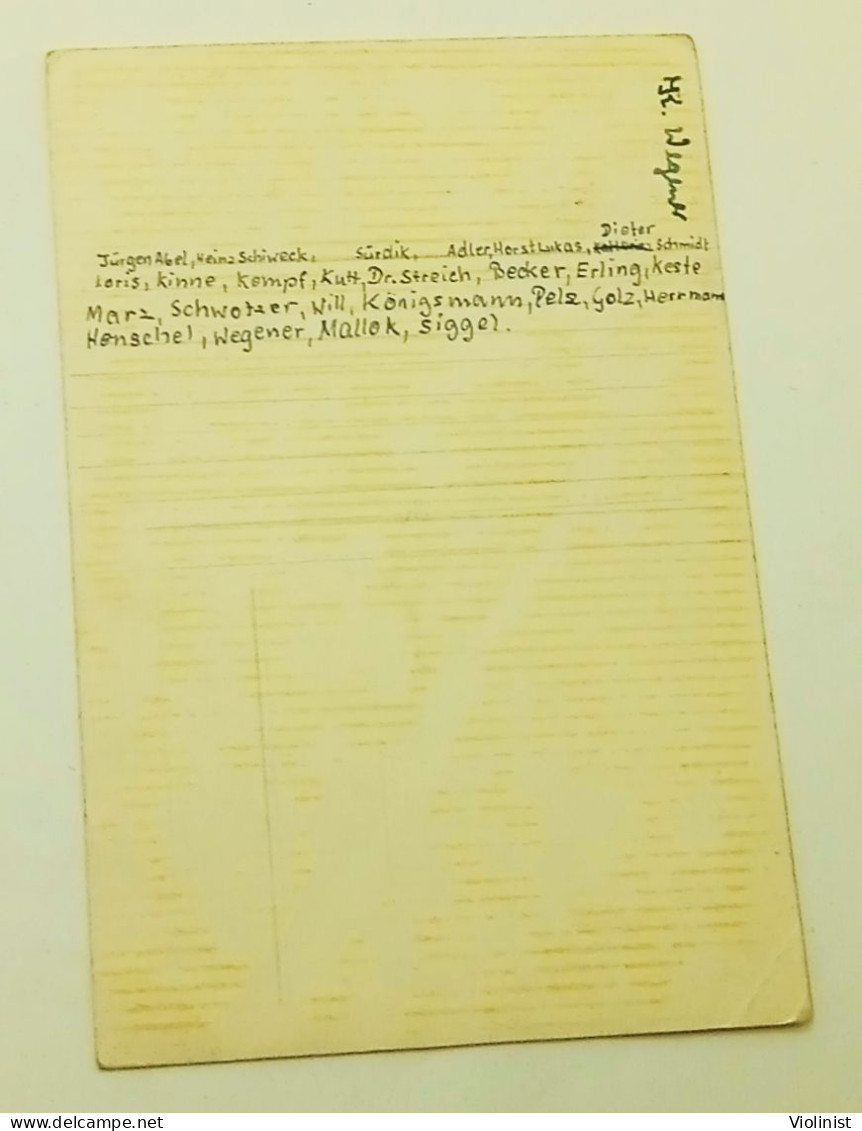 Dieter
Jürgen Abel, Heinz Schiweck, Sürdik, Adler, Horst Lukas, Schmidt
Loris, Kinne, Kempf, Kutt, Dr. Streich, Becker, Erling, Keste
Marz, Schwotzer, Will, Königsmann, Pelz, Golz, Herrmann
Henschel, Wegener, Mallok, Siggel.
Wegener
Violinist